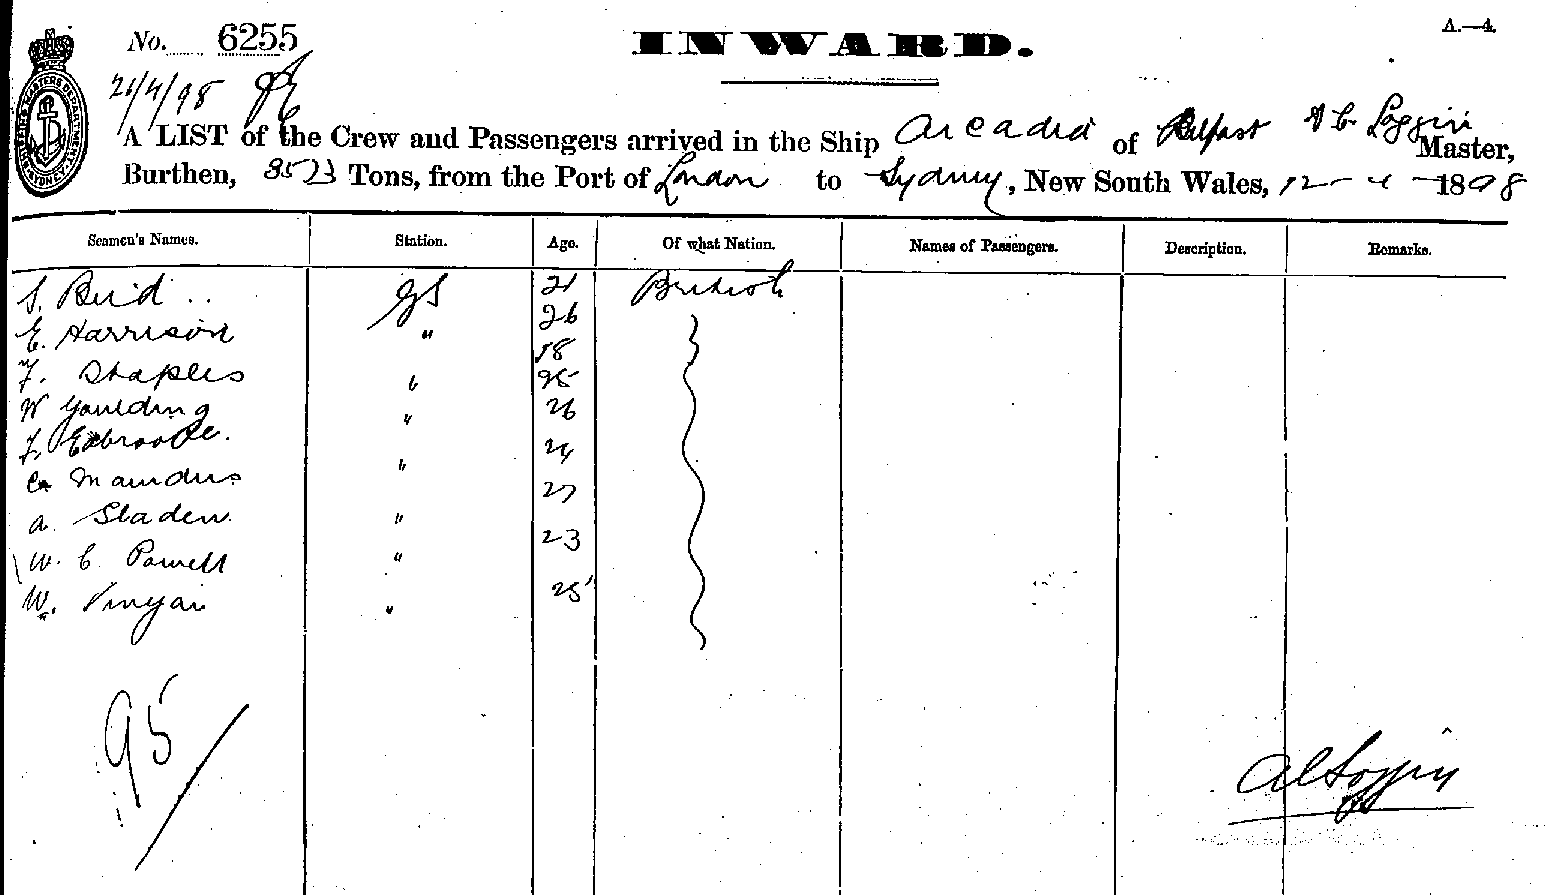 No. 6255
INWARD.
A.—4.
21/4/98
A LIST of the Crew and Passengers arrived in the Ship Arcadia of Belfast A C Loggin Master,
Burthen, 3523 Tons, from the Port of London to Sydney, New South Wales, 12 - 4 - 1898
Seamen's Names. Station. Age. Of what Nation. Names of Passengers. Description. Remarks.
S. Bird .. GS 21 British
E. Harrison " 26
F. Staples " 18
W Goulding " 25
F. 26
Maunders " 24
A. Sladen " 27
W. C. Powell " 23
W. " 25
95